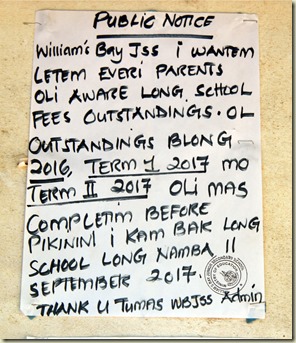 PUBLIC NOTICE
William's Bay Jss i WANTEM
LETEM EVERI PARENTS
OLI AWARE LONG SCHOOL
FEES OUTSTANDINGS. OL
OUTSTANDINGS BLONG
2016, TERM 1 2017 MO
TERM II 2017 OLI MAS
COMPLETIM BEFORE
PIKININI i KAM BAK LONG
SCHOOL LONG NAMBA 11
SEPTEMBER 2017.
THANK U TUMAS WBJSS Admin